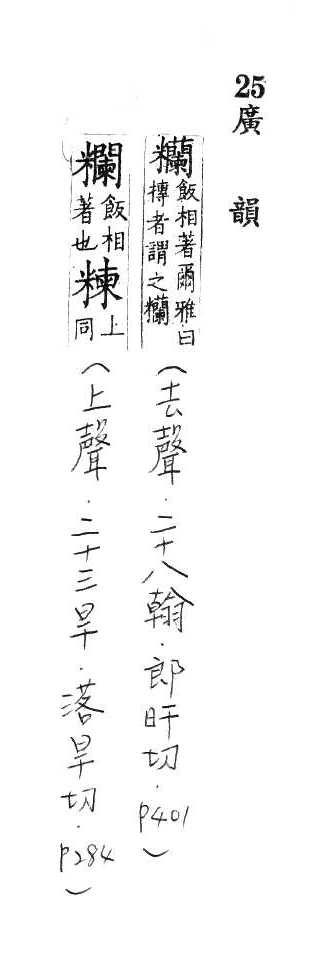 25廣韻
糷飯相著爾雅曰摶者謂之糷(去聲.二十八翰.郎旰切.P401)
糷飯相著也䊛上同(上聲.二十三旱.落旱切.P284)